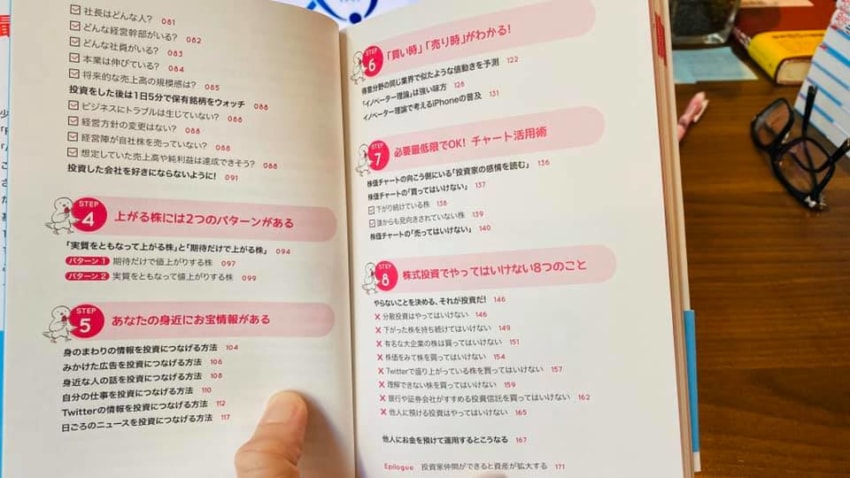 社長はどんな人? 081
どんな経営幹部がいる? 082
どんな社員がいる? 083
本業は伸びている? 084
将来的な売上高の規模感は? 085
投資をした後は1日5分で保有銘柄をウォッチ 088
ビジネスにトラブルは生じていない? 088
経営方針の変更はない? 088
経営陣が自社株を売っていない? 088
想定していた売上高や純利益は達成できそう? 088
投資した会社を好きにならないように! 091
STEP 4 上がる株には2つのパターンがある
「実質をともなって上がる株」と「期待だけで上がる株」 094
パターン1 期待だけで値上がりする株 097
パターン2 実質をともなって値上がりする株 099
STEP 5 あなたの身近にお宝情報がある
身のまわりの情報を投資につなげる方法 104
みかけた広告を投資につなげる方法 106
身近な人の話を投資につなげる方法 108
自分の仕事を投資につなげる方法 110
Twitterの情報を投資につなげる方法 112
日ごろのニュースを投資につなげる方法 117
STEP 6 「買い時」「売り時」がわかる!
得意分野の同じ業界で似たような値動きを予測 122
「イノベーター理論」は強い味方 128
イノベーター理論で考えるiPhoneの普及 131
STEP 7 必要最低限でOK! チャート活用術
株価チャートの向こう側にいる「投資家の感情を読む」 136
株価チャートの「買ってはいけない」 137
下がり続けている株 138
誰からも見向きされていない株 139
株価チャートの「売ってはいけない」 140
STEP 8 株式投資でやってはいけない8つのこと
やらないことを決める、それが投資だ! 146
分散投資はやってはいけない 146
下がった株を持ち続けてはいけない 149
有名な大企業の株は買ってはいけない 151
株価をみて株を買ってはいけない 154
Twitterで盛り上がっている株を買ってはいけない 157
理解できない株を買ってはいけない 159
銀行や証券会社がすすめる投資信託を買ってはいけない 162
他人に預ける投資はやってはいけない 165
他人にお金を預けて運用するとこうなる 167
Epilogue 投資家仲間ができると資産が拡大する 171